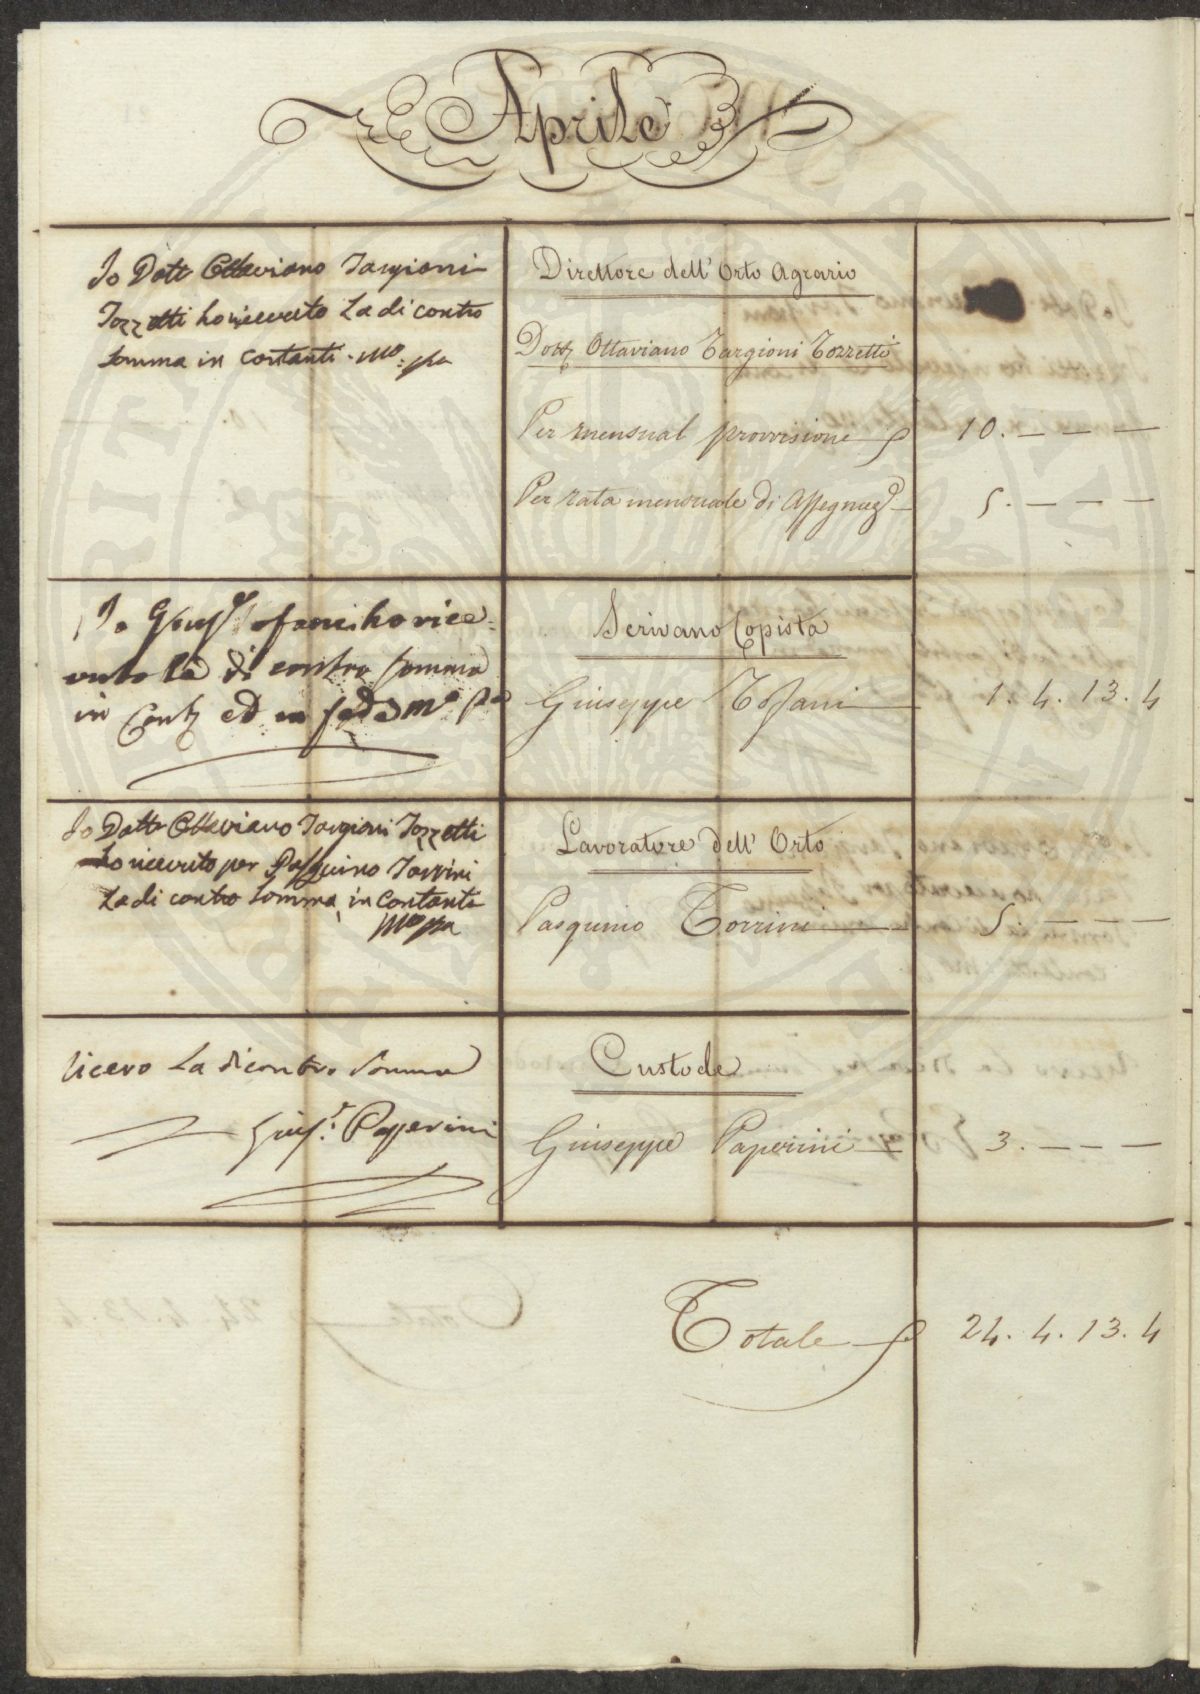 Aprile
Io Dott Ottaviano Targioni
Tozzetti ho ricevuto La di contro
Somma in Contanti. Mo: pa
Direttore dell' Orto Agrario
Dott Ottaviano Targioni Tozzetti
Per mensual provvisione 10. — — —
Per rata mensuale di Assegnaz 5. — — —
Io Giuse Tofani ho rice
vuto la di contro somma
in Conti ed in fede Mo pa
Scrivano Copista
Giuseppe Tofani 1. 4. 13. 4
Io Dott Ottaviano Targioni Tozzetti
ho ricevuto per Pasquino Torrini
La di contro Somma, in Contanti
Mo pa
Lavoratore dell' Orto
Pasquino Torrini 5. — — —
ricevo La di contro Somma
Giuse Paperini
Custode
Giuseppe Paperini 3. — — —
Totale 24. 4. 13. 4